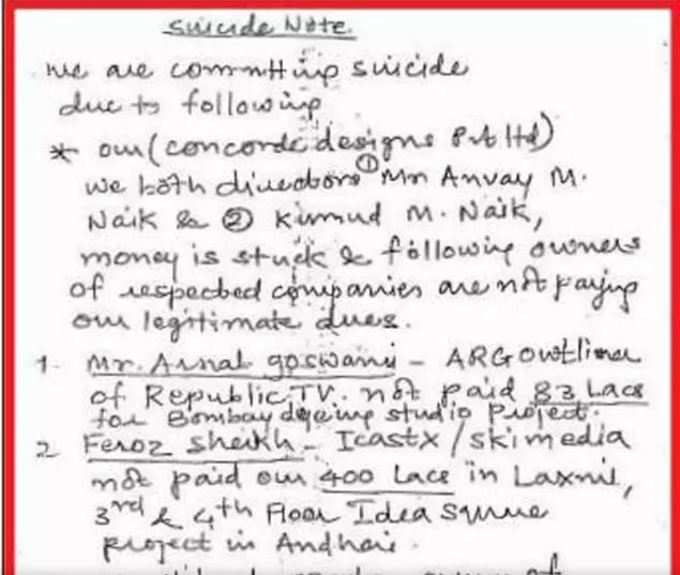 Suicide Note.
we are committing suicide
due to following
* our (concorde designs Pvt Ltd)
we both directors ① Mr Anvay M.
Naik & ② Kumud M. Naik,
money is stuck & following owners
of respected companies are not paying
our legitimate dues.
1. Mr. Arnab goswami - ARG Outlier
of Republic TV. not paid 83 Lacs
for Bombay dyeing studio Project.
2 Feroz Sheikh - Icastx / skimedia
not paid our 400 Lacs in Laxmi,
3rd & 4th Floor Idea Square
project in Andheri.